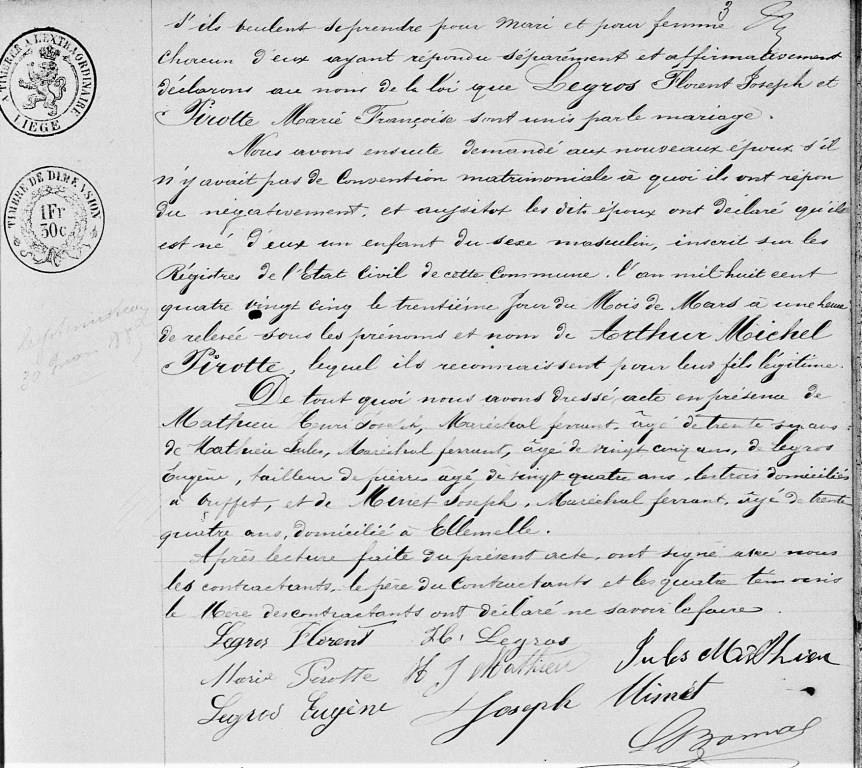 3
s'ils veulent se prendre pour mari et pour femme
chacun d'eux ayant répondu séparément et affirmativement
déclarons au nom de la loi que Legros Florent Joseph et
Pirotte Marie Françoise sont unis par le mariage.
Nous avons ensuite demandé aux nouveaux époux s'il
n'y avait pas de Convention matrimoniale à quoi ils ont répon
du négativement, et aussitot les dits époux ont déclaré qu'il
est né d'eux un enfant du sexe masculin, inscrit sur les
Régistres de l'Etat Civil de cette Commune. l'an mil huit cent
quatre vingt cinq le trentième Jour du Mois de Mars à une heure
de relevée sous les prénoms et nom de Arthur Michel
Pirotte, lequel ils reconnaissent pour leur fils légitime.
De tout quoi nous avons dressé acte en présence de
Mathieu Henri Joseph, Maréchal ferrant, âgé de trente ans
de Mathieu Jules, Maréchal ferrant, âgé de vingt cinq ans, de Legros
Eugène, tailleur de pierres âgé de vingt quatre ans, les trois domiciliés
à et de Minet Joseph, Maréchal ferrant, âgé de trente
quatre ans, domicilié à Ellemelle.
Après lecture faite du présent acte, ont signé avec nous
les contractants, le père du Contractants et les quatre témoins
la Mère des contractants ont déclaré ne savoir le faire.
Legros Florent H. Legros
Marie Pirotte H J Mathieu Jules Mathieu
Legros Eugène Joseph Minet
A TIMBRER A L'EXTRAORDINAIRE
LIEGE
TIMBRE DE DIMENSION
1Fr
30c